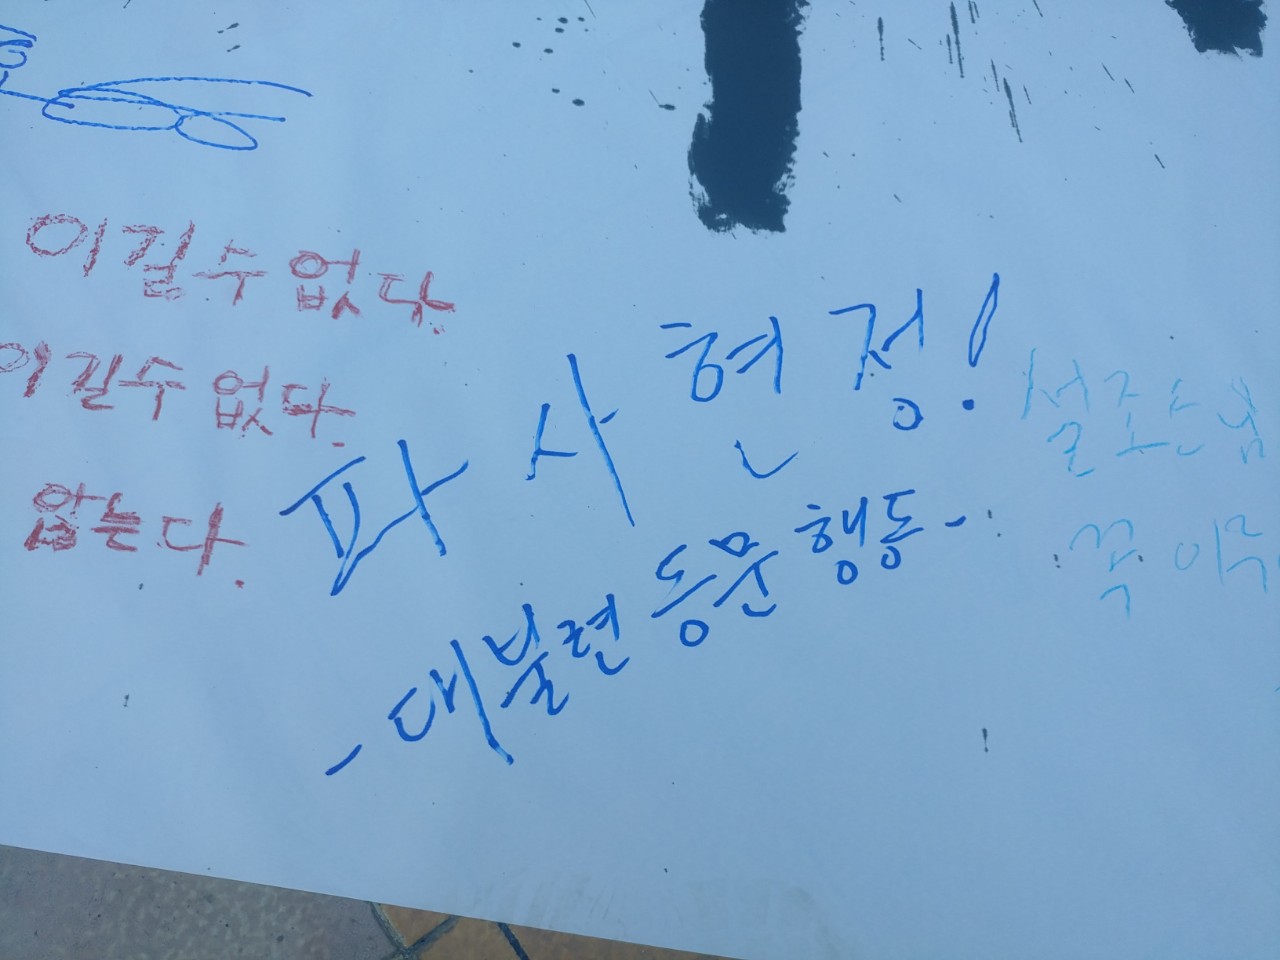 이길수 없다.
이길수 없다.
않는다.
파사현정!
- 대불련 동문 행동 -
설조스님
꼭 이루